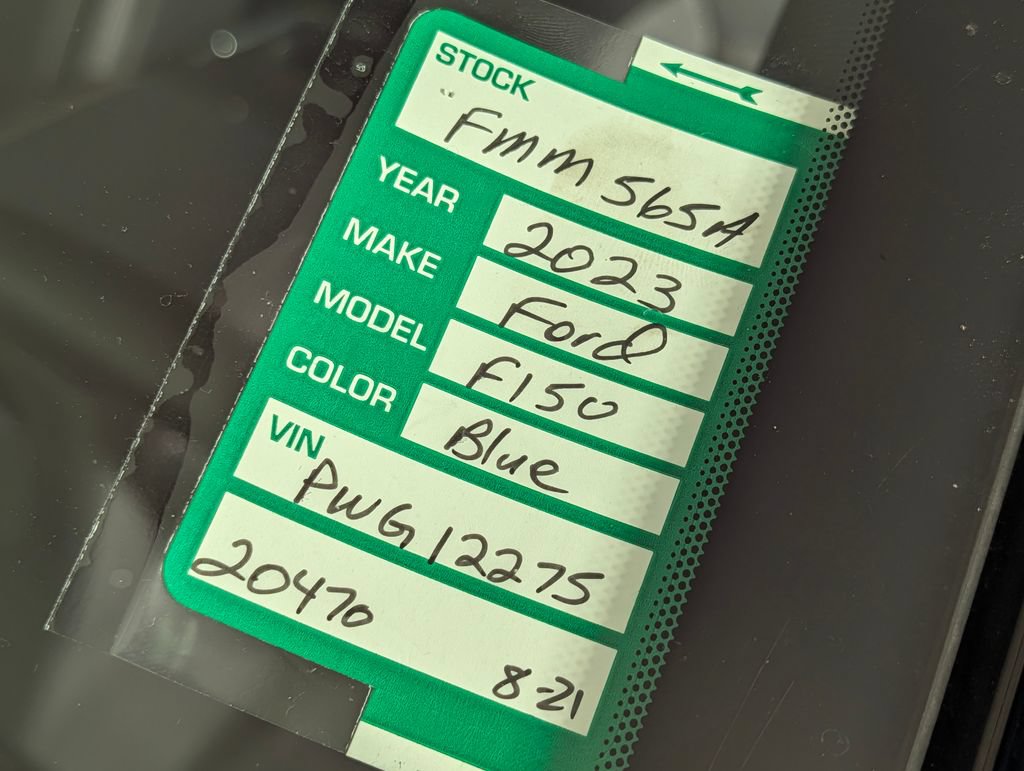 STOCK
"FMM565A
YEAR 2023
MAKE Ford
MODEL F150
COLOR Blue
VIN
PWG12275
20470
8-21